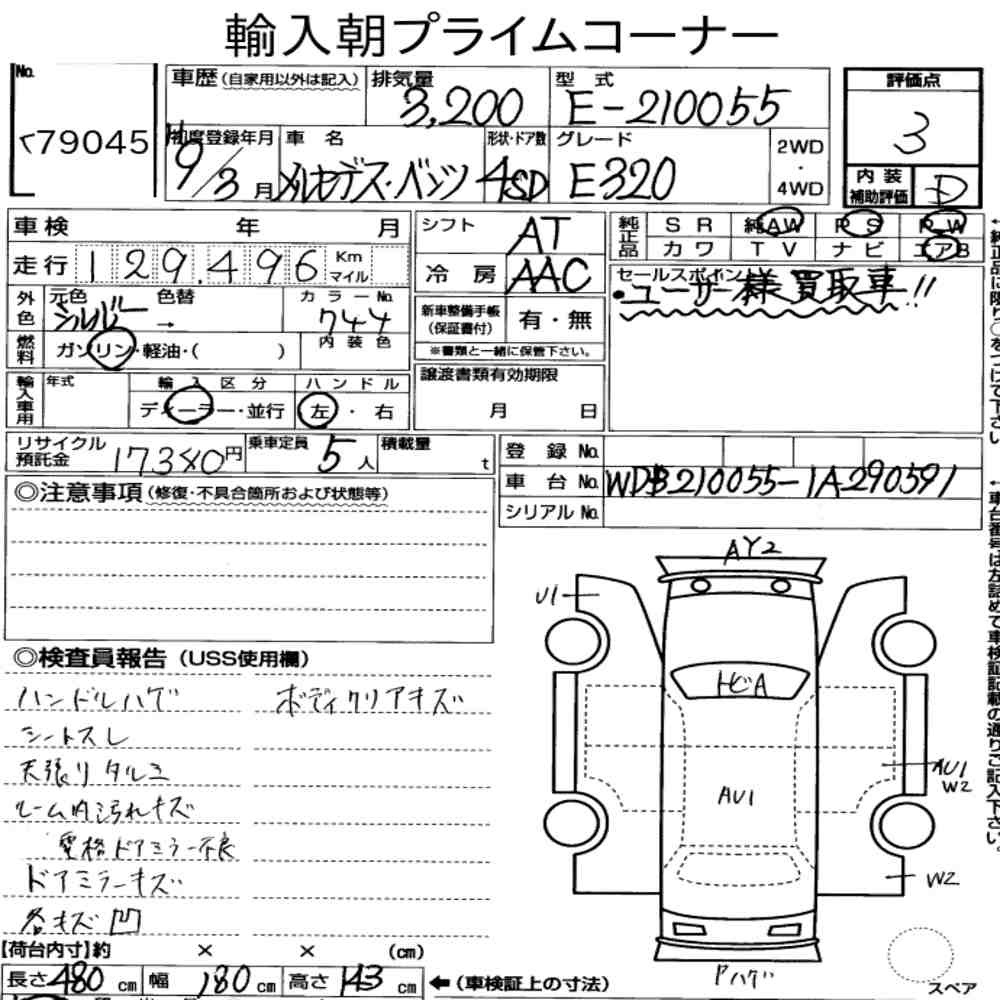 輸入朝プライムコーナー
No. 79045
車歴 (自家用以外は記入) 排気量 3,200 型式 E-210055
初度登録年月 H9/3月 車名 メルセデス・ベンツ 形状・ドア数 4SD グレード E320 2WD・4WD
評価点 3
内装補助評価 D
車検 年 月
走行 129,496 Km マイル
外色 元色 シルバー → 色替 カラーNo. 744
燃料 ガソリン・軽油・( ) 内装色
輸入車用 年式 輸入区分 ディーラー・並行 ハンドル 左・右
シフト AT
冷房 AAC
新車整備手帳(保証書付) 有・無
※書類と一緒に保管下さい。
譲渡書類有効期限
月 日
純正品 SR 純AW PS PW
カワ TV ナビ エアB
セールスポイント
・ユーザー様買取車!!
←純正品に限り○をつけて下さい
リサイクル預託金 17380円 乗車定員 5人 積載量 t
登録No.
車台No. WDB210055-1A290591
シリアルNo.
←車台番号は左詰めで車検証記載の通りご記入下さい。
◎注意事項(修復・不具合箇所および状態等)
◎検査員報告(USS使用欄)
ハンドルハゲ ボディクリアキズ
シートスレ
天張リタルミ
ルーム内汚れキズ
電格ドアミラー不良
ドアミラーキズ
各キズ凹
AY2
U1
トビA
AU1
AU1
W2
W2
Pハゲ
スペア
【荷台内寸】約 × × (cm)
長さ 480 cm 幅 180 cm 高さ 143 cm ←(車検証上の寸法)